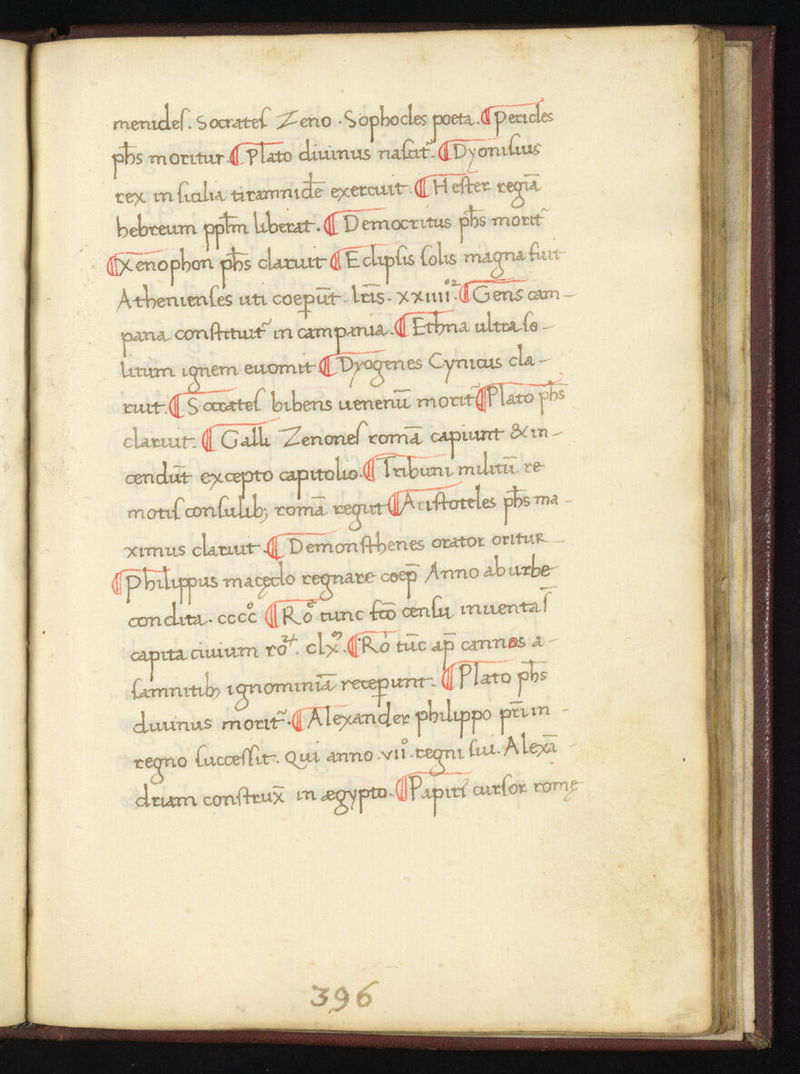 menideſ. Socrateſ Zeno. Sophocles poeta. ¶ Pericles
ph̅s moritur. ¶ Plato diuinus naſcit᷑. ¶ Dyoniſius
rex in ſicilia tirannidē exercuit. ¶ Heſter regiā
hebreum pp̅lm liberat. ¶ Democritus ph̅s morit᷑
¶ Xenophon ph̅s claruit ¶ Eclipſis ſolis magna fuit
Athenienſes uti coeperūt. lr̅is. xxiiii. ¶ Gens cam-
pana conſtituit᷑ in campania. ¶ Ethna ultra ſo-
litum ignem euomit ¶ Dyogenes Cynicus cla-
ruit. ¶ Socrateſ bibens uenenū morit᷑ ¶ Plato ph̅s
claruit. ¶ Galli Zenoneſ romā capiunt & in-
cendūt excepto capitolio. ¶ Tribuni militū re
motiſ conſulib; romā regūt ¶ Ariſtoteles ph̅s ma-
ximus claruit. ¶ Demonſthenes orator oritur
¶ Philippus macędo regnare coep̅ Anno ab urbe
condita. ccccͦ ¶ Ro̅ᵉ tunc fc̅o cenſu inuenta ſ̅
capita ciuium roꝝ. clx̅. ¶ Ro̅ⁱ tūc ap̅ cannas a-
ſamnitib; ignominiā receperunt. ¶ Plato ph̅s
diuinus morit᷑. ¶ Alexander philippo pr̅i in-
regno ſucceſſit. Qui anno .viiͦ. regni ſui. Alexā
driam conſtrux̅ in ægypto. ¶ Papiri᷒ curſor romę
396